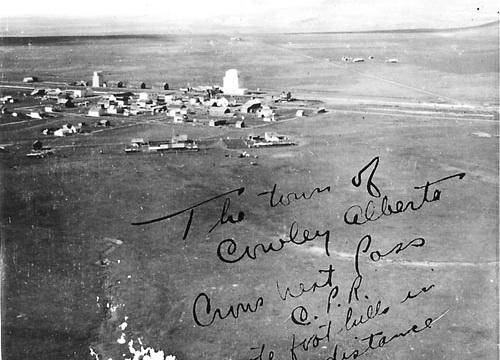 The town of
Cowley Alberta
Crows nest Pass
C.P.R.
foot hills in
distance